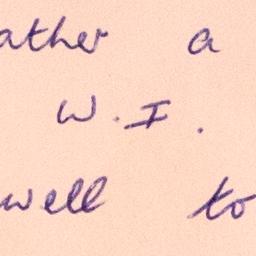 ather a
W.I.
well to